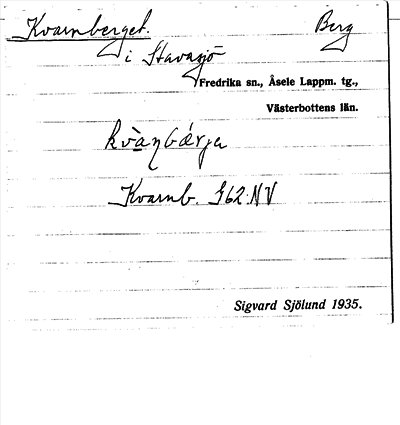 Kvarnberget. Berg
i Stavasjö
Fredrika sn., Åsele Lappm. tg.,
Västerbottens län.
kvà̱ṇbǽrja
Kvarnb. 962 NV
Sigvard Sjölund 1935.